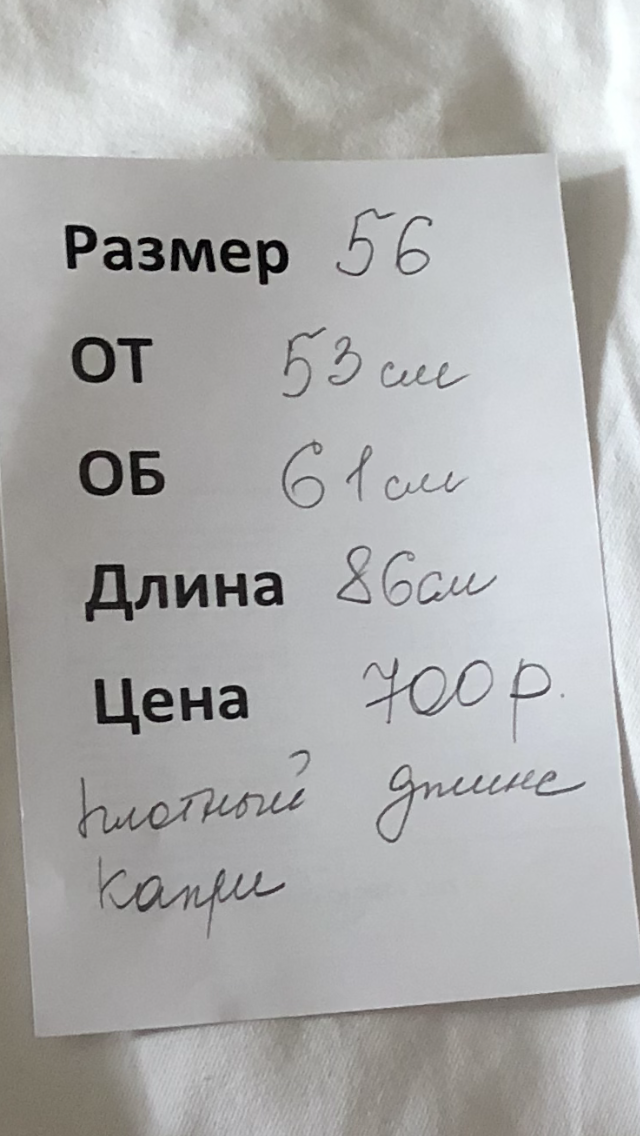 Размер 56
ОТ 53 см
ОБ 61 см
Длина 86см
Цена 700 р.
плотный джинс
капри